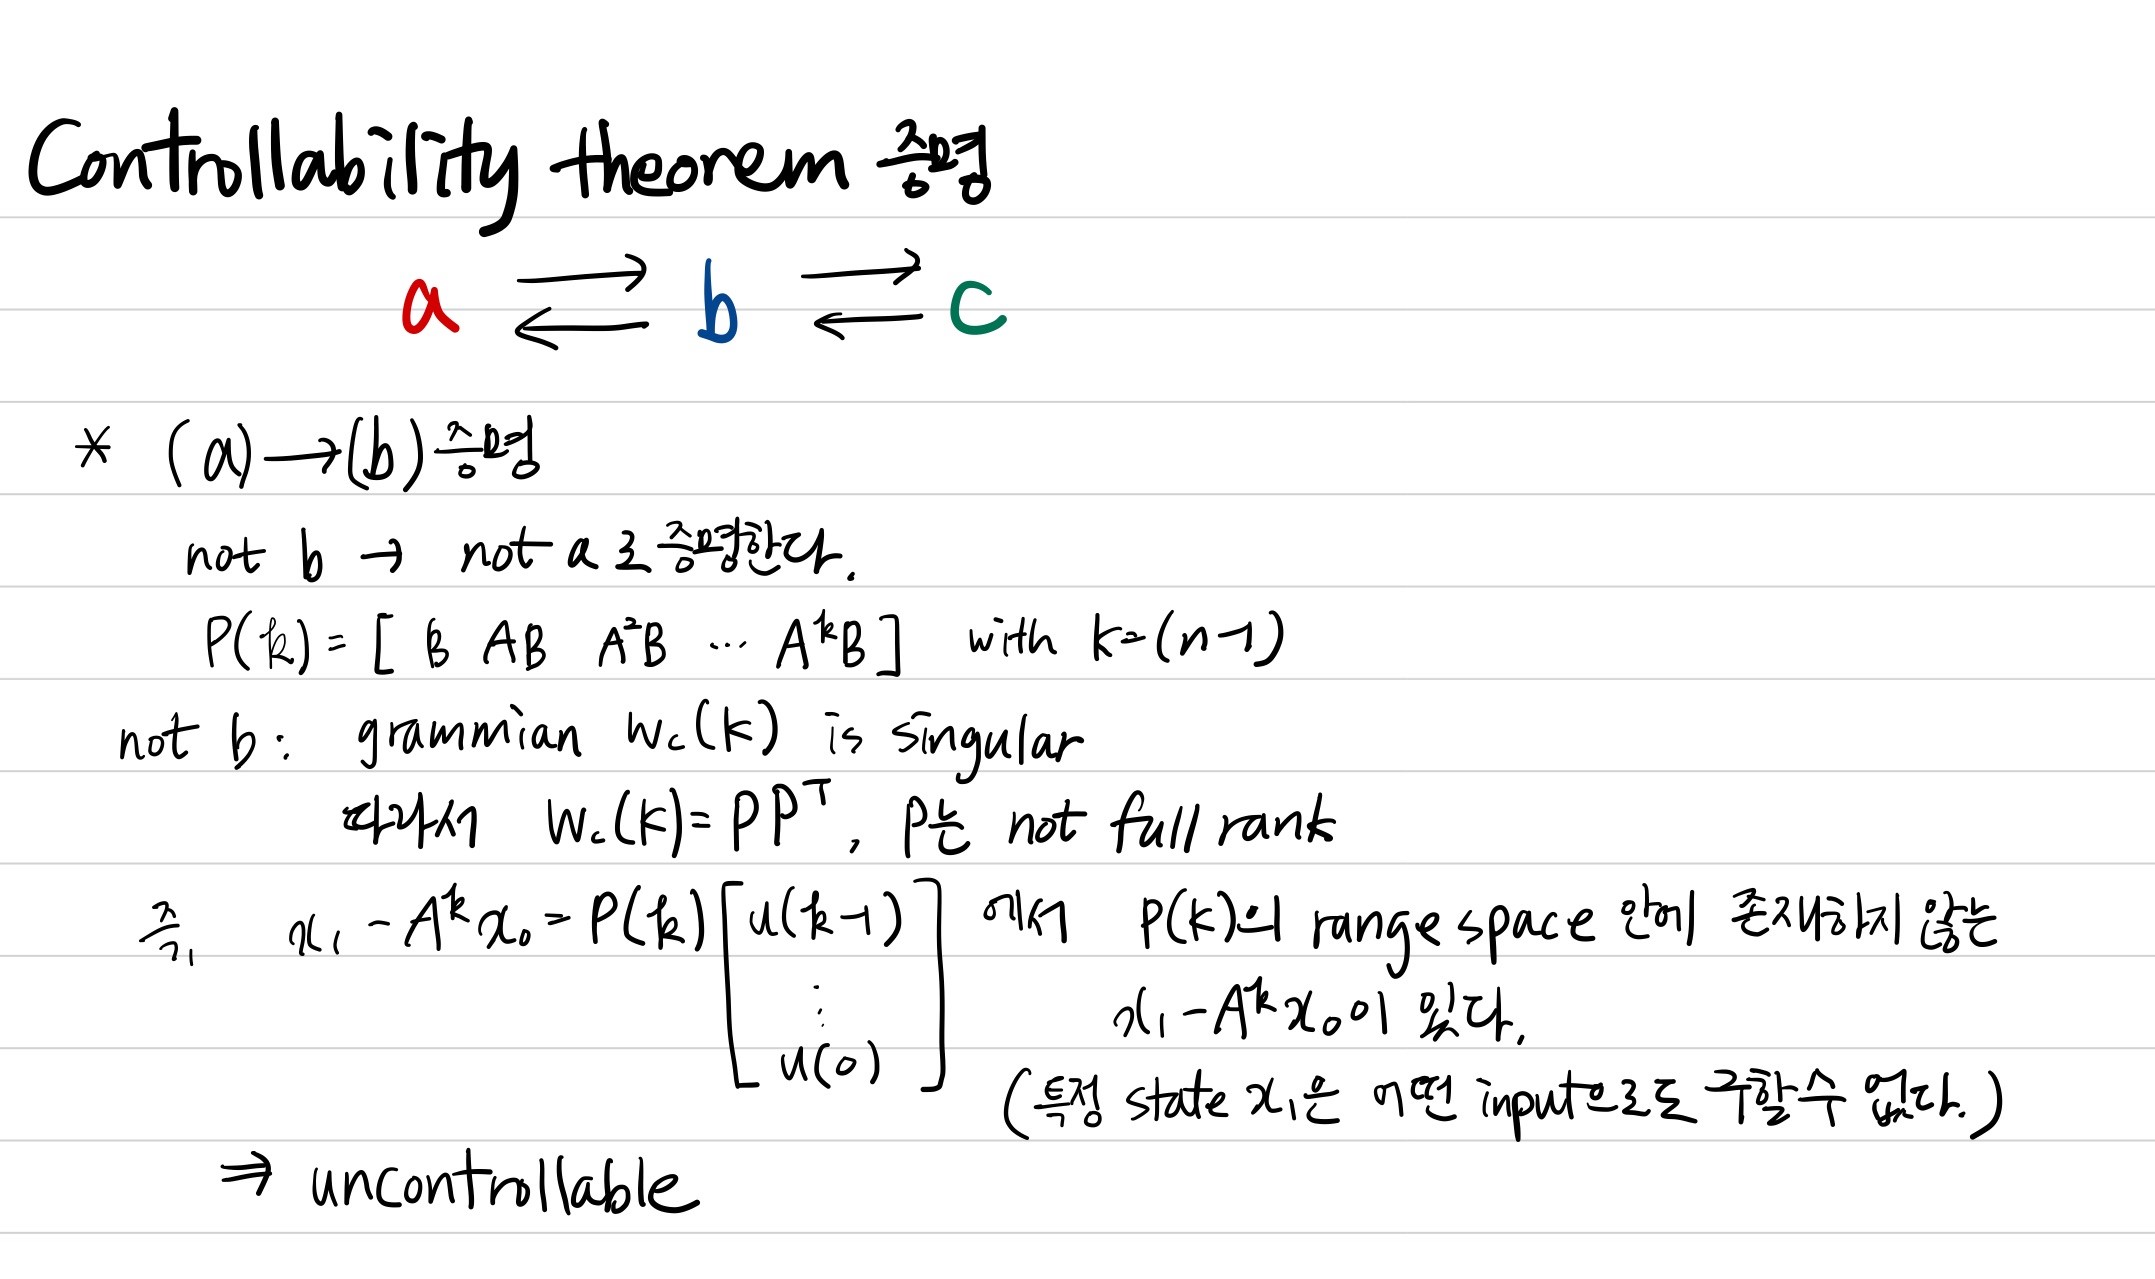 Controllability theorem 증명
a ⇄ b ⇄ c
* (a)→(b)증명
not b → not a로 증명한다.
P(k) = [ B AB A²B ⋯ AᵏB ] with k=(n-1)
not b : grammian Wc(k) is singular
따라서 Wc(k)=PPᵀ, P는 not full rank
즉, x₁ - Aᵏx₀ = P(k) [ u(k-1) ⋮ u(0) ] 에서 P(k)의 range space 안에 존재하지 않는
x₁ - Aᵏx₀이 있다.
(특정 state x₁은 어떤 input으로도 구할 수 없다.)
⇒ uncontrollable